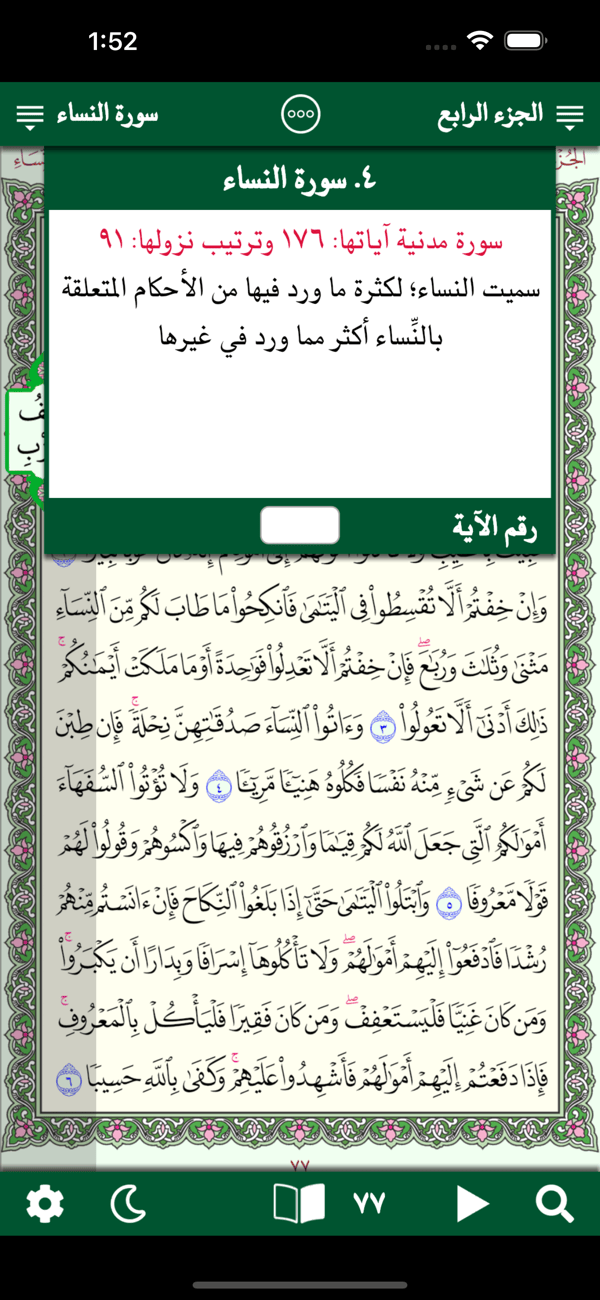 1:52
الجزء الرابع
سورة النساء
٤. سورة النساء
سورة مدنية آياتها: ١٧٦ وترتيب نزولها: ٩١
سميت النساء؛ لكثرة ما ورد فيها من الأحكام المتعلقة
بالنِّساء أكثر مما ورد في غيرها
رقم الآية
وَإِنْ خِفْتُمْ أَلَّا تُقْسِطُوا۟ فِى ٱلْيَتَٰمَىٰ فَٱنكِحُوا۟ مَا طَابَ لَكُم مِّنَ ٱلنِّسَآءِ
مَثْنَىٰ وَثُلَٰثَ وَرُبَٰعَ ۖ فَإِنْ خِفْتُمْ أَلَّا تَعْدِلُوا۟ فَوَٰحِدَةً أَوْ مَا مَلَكَتْ أَيْمَٰنُكُمْ ۚ
ذَٰلِكَ أَدْنَىٰٓ أَلَّا تَعُولُوا۟ ٣ وَءَاتُوا۟ ٱلنِّسَآءَ صَدُقَٰتِهِنَّ نِحْلَةً ۚ فَإِن طِبْنَ
لَكُمْ عَن شَىْءٍ مِّنْهُ نَفْسًا فَكُلُوهُ هَنِيٓـًٔا مَّرِيٓـًٔا ٤ وَلَا تُؤْتُوا۟ ٱلسُّفَهَآءَ
أَمْوَٰلَكُمُ ٱلَّتِى جَعَلَ ٱللَّهُ لَكُمْ قِيَٰمًا وَٱرْزُقُوهُمْ فِيهَا وَٱكْسُوهُمْ وَقُولُوا۟ لَهُمْ
قَوْلًا مَّعْرُوفًا ٥ وَٱبْتَلُوا۟ ٱلْيَتَٰمَىٰ حَتَّىٰٓ إِذَا بَلَغُوا۟ ٱلنِّكَاحَ فَإِنْ ءَانَسْتُم مِّنْهُمْ
رُشْدًا فَٱدْفَعُوٓا۟ إِلَيْهِمْ أَمْوَٰلَهُمْ ۖ وَلَا تَأْكُلُوهَآ إِسْرَافًا وَبِدَارًا أَن يَكْبَرُوا۟ ۚ
وَمَن كَانَ غَنِيًّا فَلْيَسْتَعْفِفْ ۖ وَمَن كَانَ فَقِيرًا فَلْيَأْكُلْ بِٱلْمَعْرُوفِ ۚ
فَإِذَا دَفَعْتُمْ إِلَيْهِمْ أَمْوَٰلَهُمْ فَأَشْهِدُوا۟ عَلَيْهِمْ ۚ وَكَفَىٰ بِٱللَّهِ حَسِيبًا ٦
٧٧
٧٧